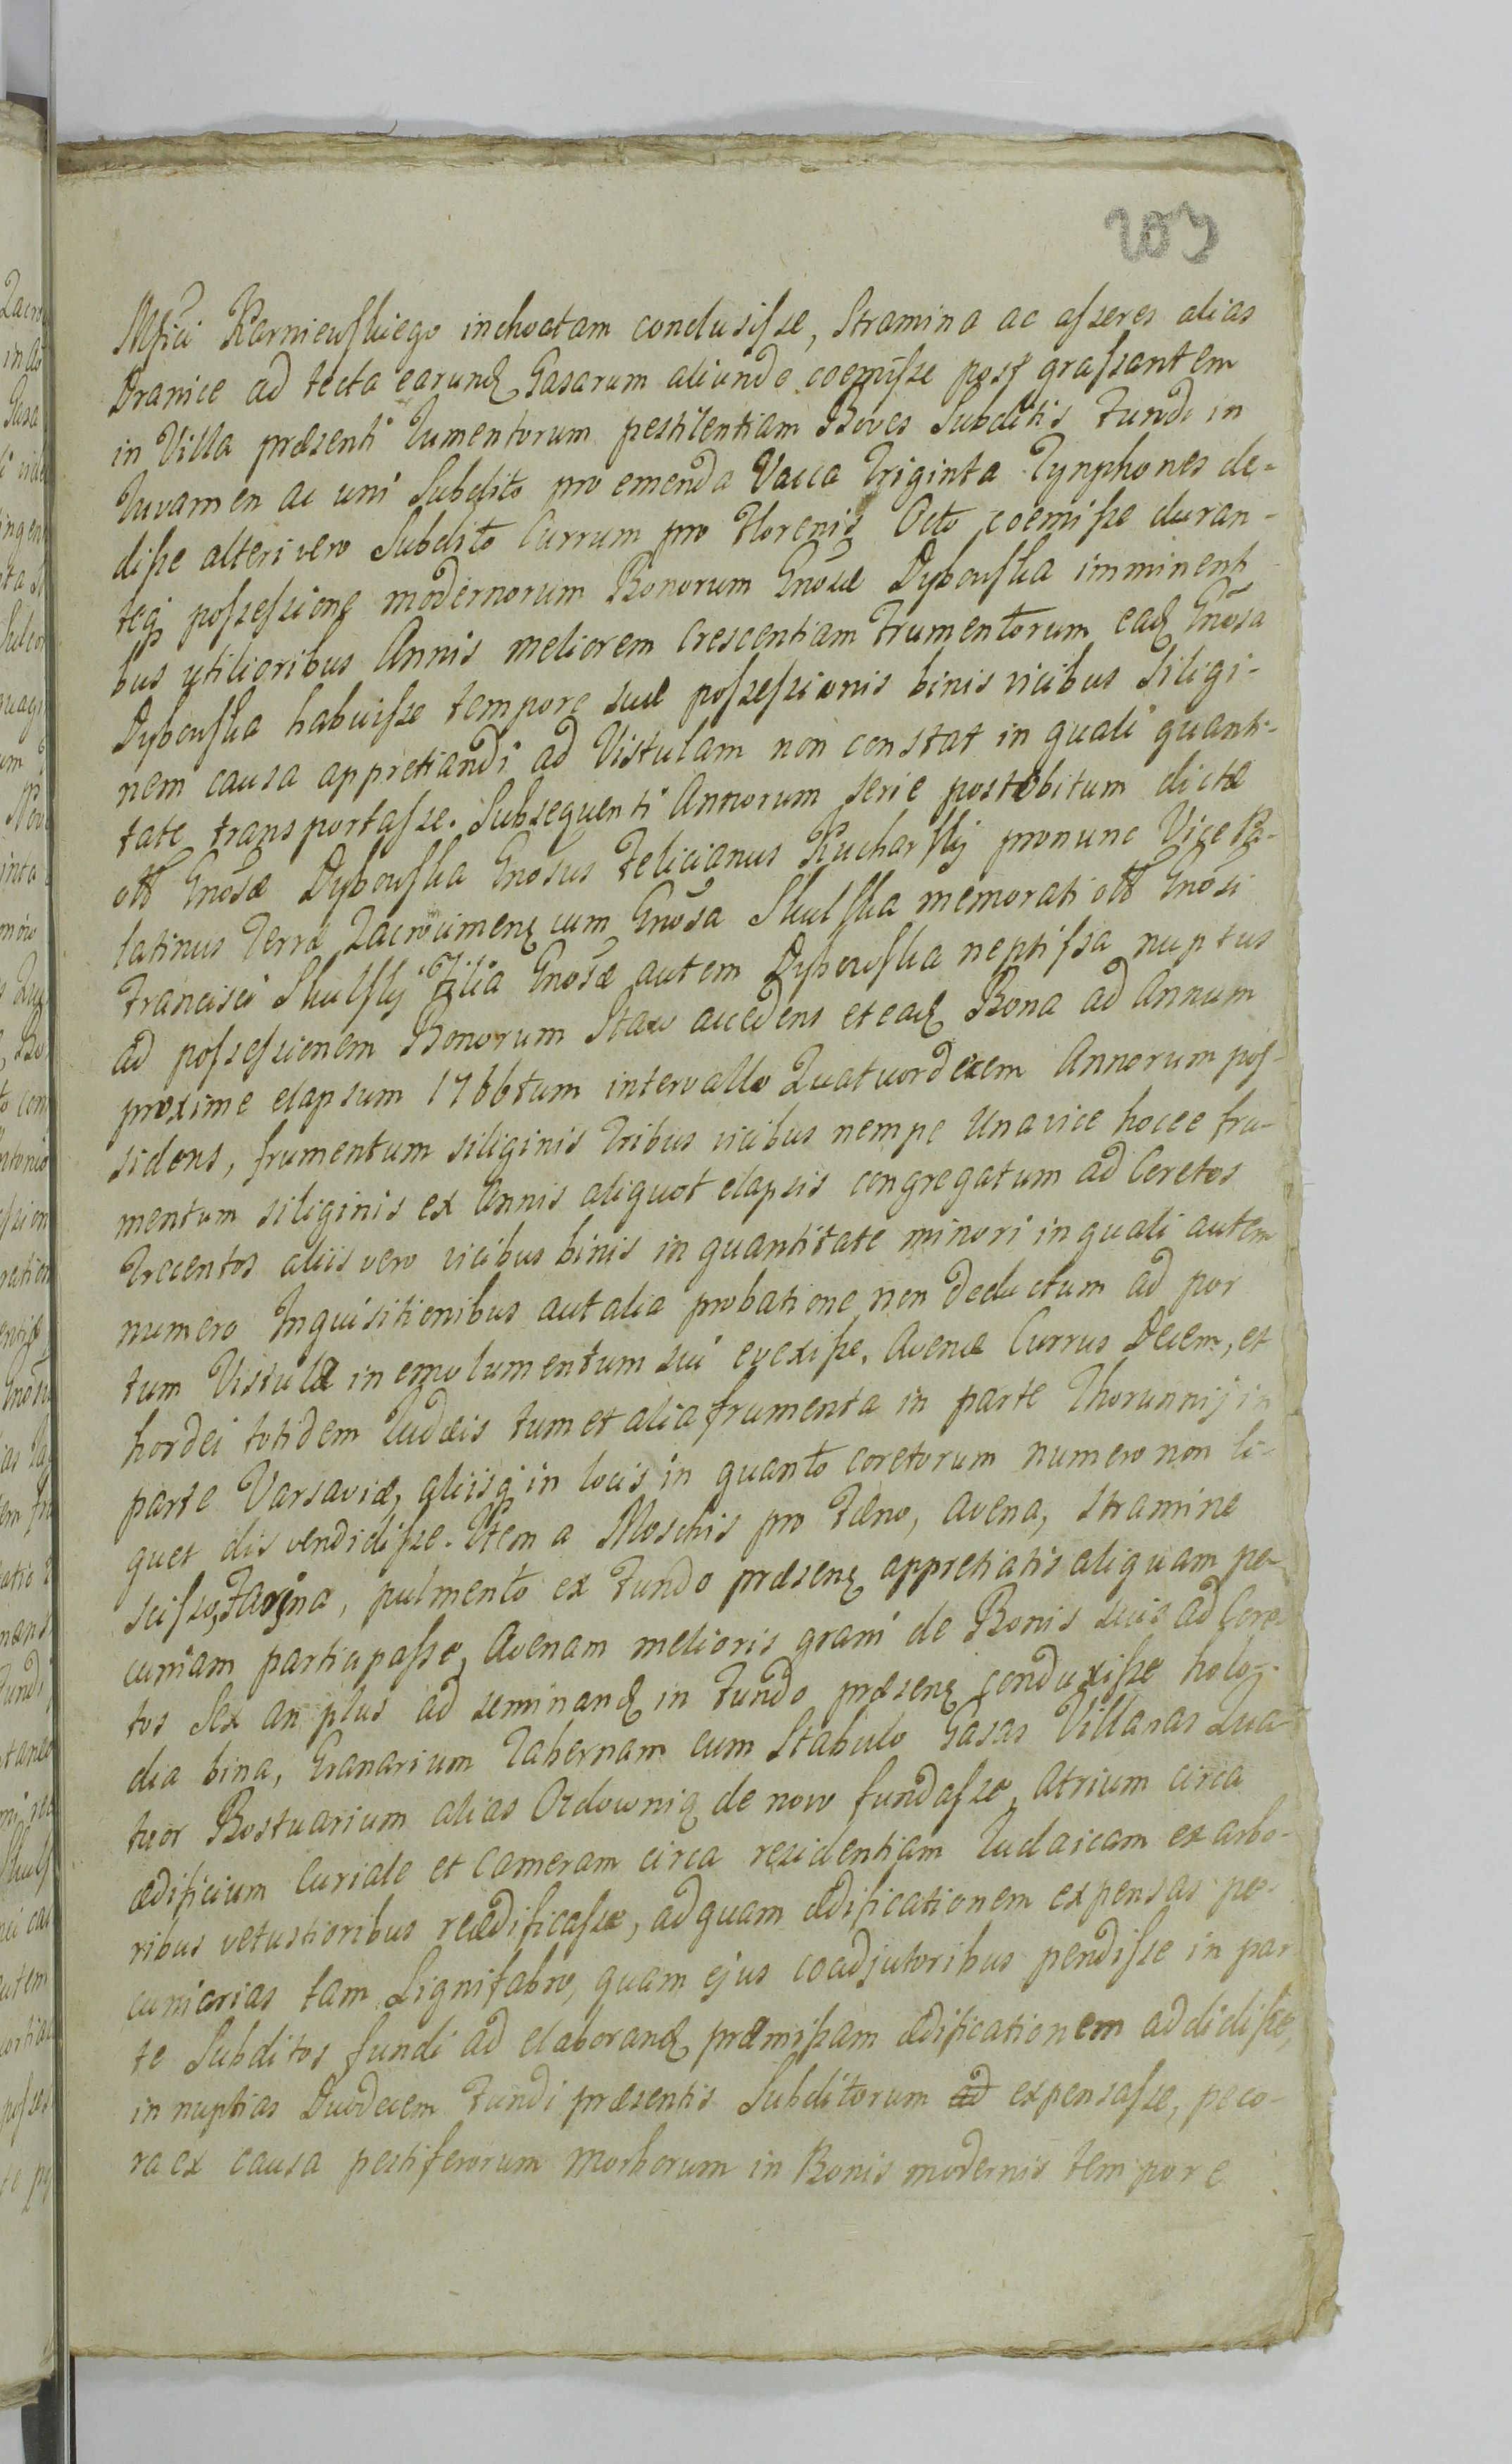 203
Mfici Karniewskiego inchoatam conclusisse, Stramina ac asseres alias
Dranice ad tecta earundꝫ Casarum aliunde coemisse post grassantem
in Villa præsenti Iumentorum pestilentiam Boves Subditis Fundi in
Iuvamen ac uni Subdito pro emenda Vacca Triginta Tynphones de-
disse alteri vero Subdito Currum pro Florenis Octo coemisse duran-
teqꝫ possessione modernorum Bonorum Gnosæ Dybowska imminenti
bus utilioribus Annis meliorem Crescentiam Frumentorum eadꝫ Gnosa
Dybowska habuisse tempore suæ possessionis binis vicibus Siligi-
nem causa appretiandi ad Vistulam non constat in quali quanti-
tate transportasse. Subsequenti Annorum serie post obitum dictæ
olt̃ Gnosæ Dybowska Gnosus Felicianus Kucharskij pronunc Vice Pa-
latinus Terræ Zacrocimenꝫ cum Gnosa Skulska memorati olt̃ Gnosi
Francisci Skulskij Filia Gnosæ autem Dybowska neptissa nuptus
ad possessionem Bonorum Staw accedens et eadꝫ Bona ad Annum
proxime elapsum 1766tum intervallo Quatuordecem Annorum pos-
sidens, frumentum siliginis tribus vicibus nempe Una vice hocce fru-
mentum siliginis ex Annis aliquot elapsis congregatum ad Coretos
Trecentos aliis vero vicibus binis in quantitate minori in quali autem
numero Inquisitionibus aut alia probatione non deductum ad por
tum Vistulæ in emolumentum sui evexisse, Avenæ Currus Decem, et
hordei totidem Iudæis tum et alia frumenta in parte Thorunnij in
parte Varsaviæ, aliisqꝫ in locis in quanto coretorum numero non li-
quet disvendidisse. Item a Moschis pro Fæno, avena, stramine
scisso, Farina, pulmento ex Fundo præsenꝫ appretiatis aliquam pe-
cuniam participasse, Avenam melioris grani de Bonis suis ad Core-
tos Sex an plus ad seminandꝫ in Fundo præsenꝫ conduxisse holoꝫ-
dia bina, Granarium Tabernam cum Stabulo Casas Villanas Qua-
tuor Bostuarium alias Ozdowniꝫ de novo fundasse, Atrium circa
ædificium Curiale et Cameram circa residentiam Iudaicam ex arbo-
ribus vetustioribus reædificasse, ad quam ædificationem expensas pe-
cuniarias tam Lignifabro, quam ejus coadjutoribus pendisse in par
te Subditos fundi ad elaborandꝫ præmissam ædificationem addidisse,
in nuptias Duodecem Fundi præsentis Subditorum ad expensasse, peco-
ra ex causa pestiferorum morborum in Bonis modernis tempore